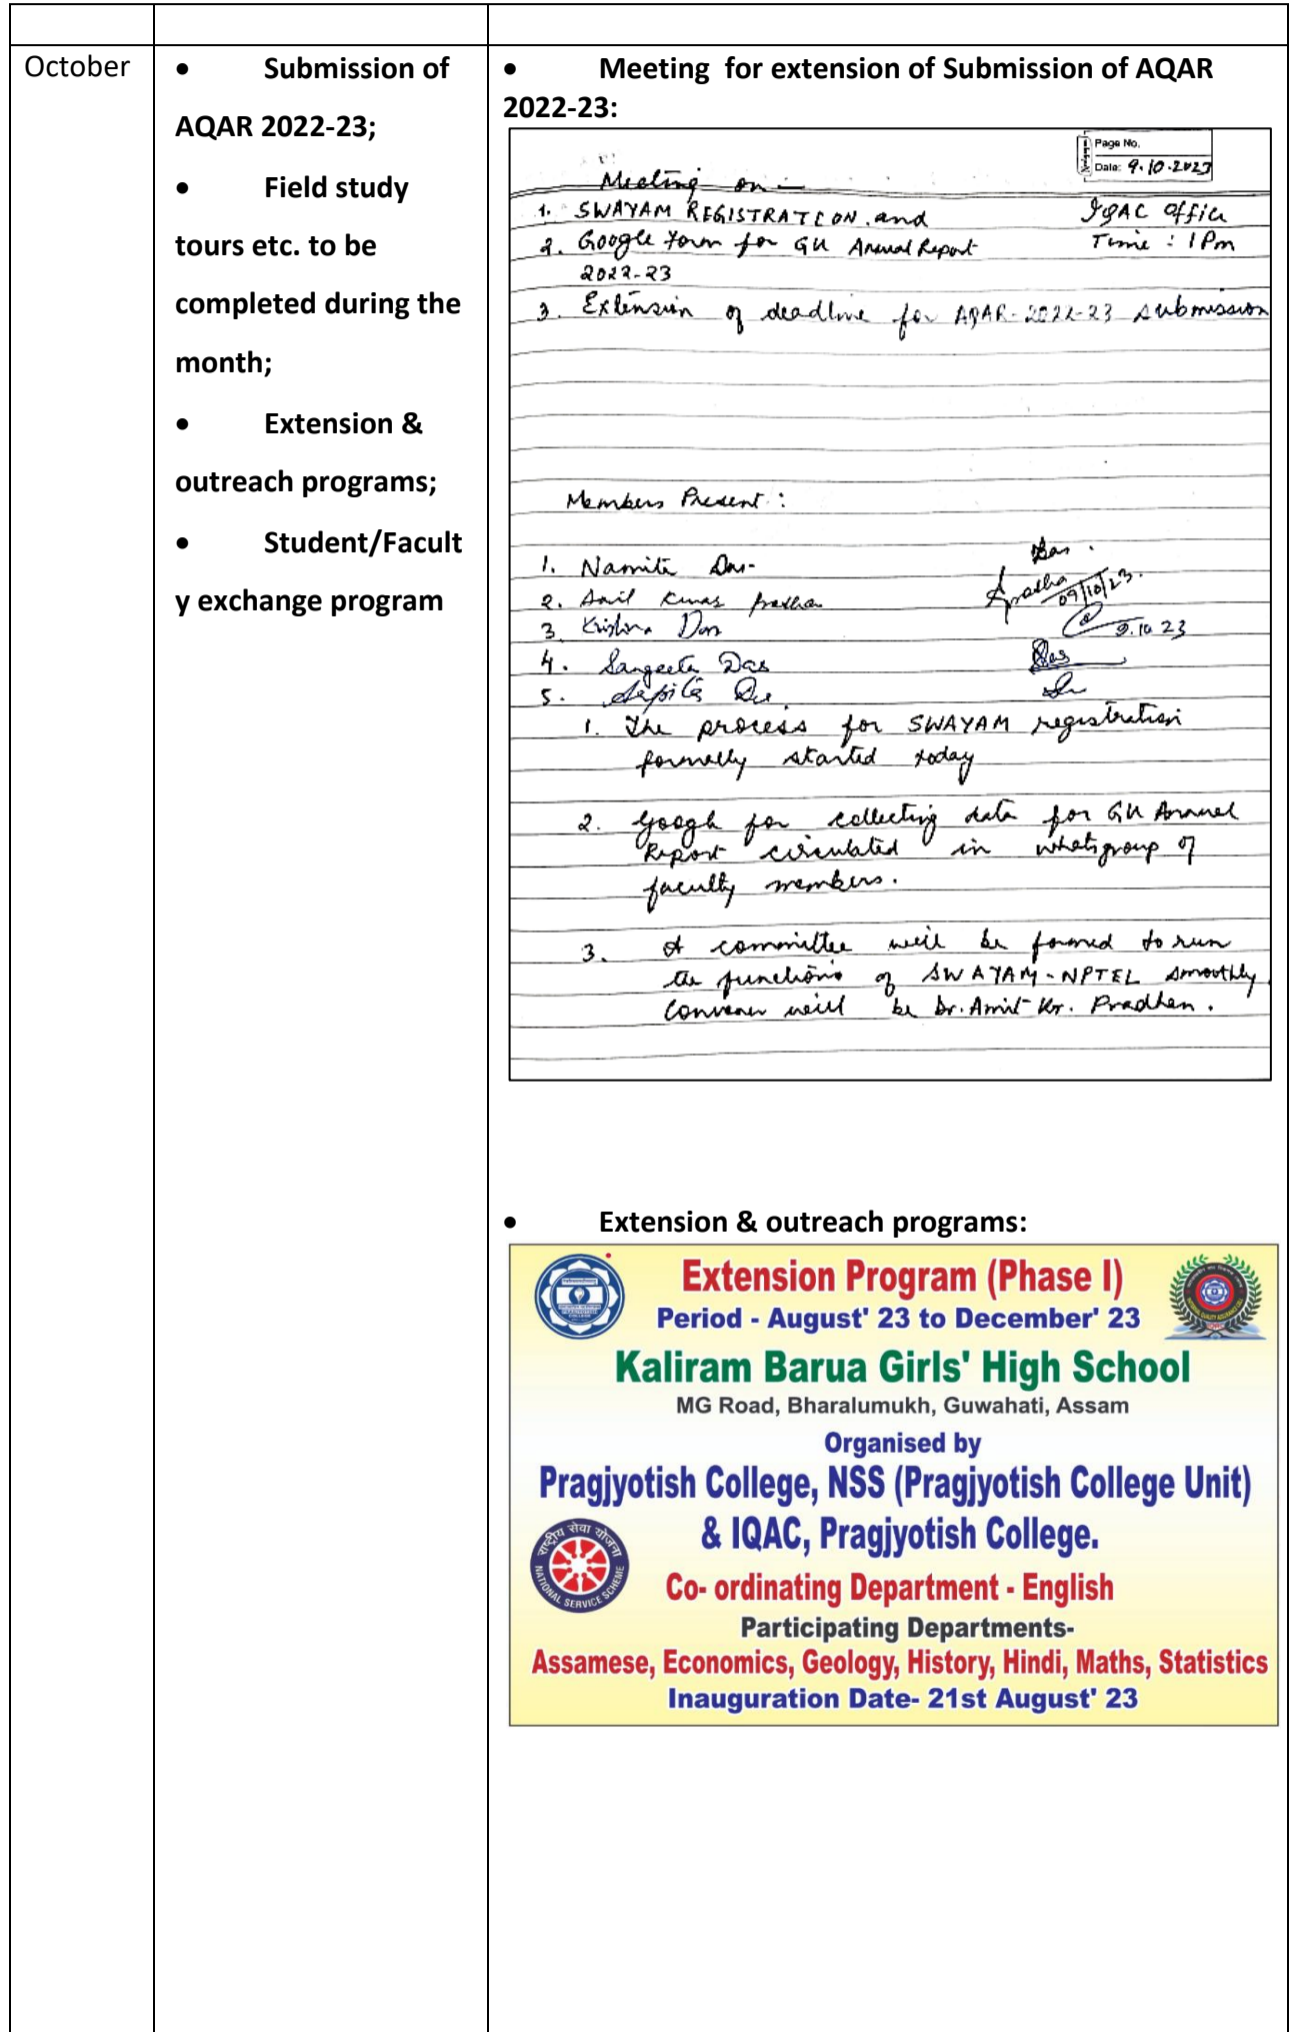 October
• Submission of
AQAR 2022-23;
• Field study
tours etc. to be
completed during the
month;
• Extension &
outreach programs;
• Student/Facult
y exchange program
• Meeting for extension of Submission of AQAR
2022-23:
Page No.
Date: 9.10.2023
Meeting on —
1. SWAYAM REGISTRATION and
IQAC Office
2. Google Form for GU Annual Report
Time : 1 Pm
2022-23
3. Extension of deadline for AQAR-2022-23 submission
Members Present :
1. Namita Das
Das
2. Kumar Pradhan
Pradhan 09/10/23.
3. Krishna Das
9.10 23
4. Sangeeta Das
Das
5.
1. The process for SWAYAM registration
formally started today
2. Google for collecting data for GU Annual
Report circulated in whatsgroup of
faculty members.
3. A committee will be formed to run
the functions of SWAYAM-NPTEL smoothly
Convener will be Dr. Amit Kr. Pradhan.
• Extension & outreach programs:
Extension Program (Phase I)
Period - August' 23 to December' 23
Kaliram Barua Girls' High School
MG Road, Bharalumukh, Guwahati, Assam
Organised by
Pragjyotish College, NSS (Pragjyotish College Unit)
& IQAC, Pragjyotish College.
राष्ट्रीय सेवा योजना
NATIONAL SERVICE SCHEME
Co- ordinating Department - English
Participating Departments-
Assamese, Economics, Geology, History, Hindi, Maths, Statistics
Inauguration Date- 21st August' 23